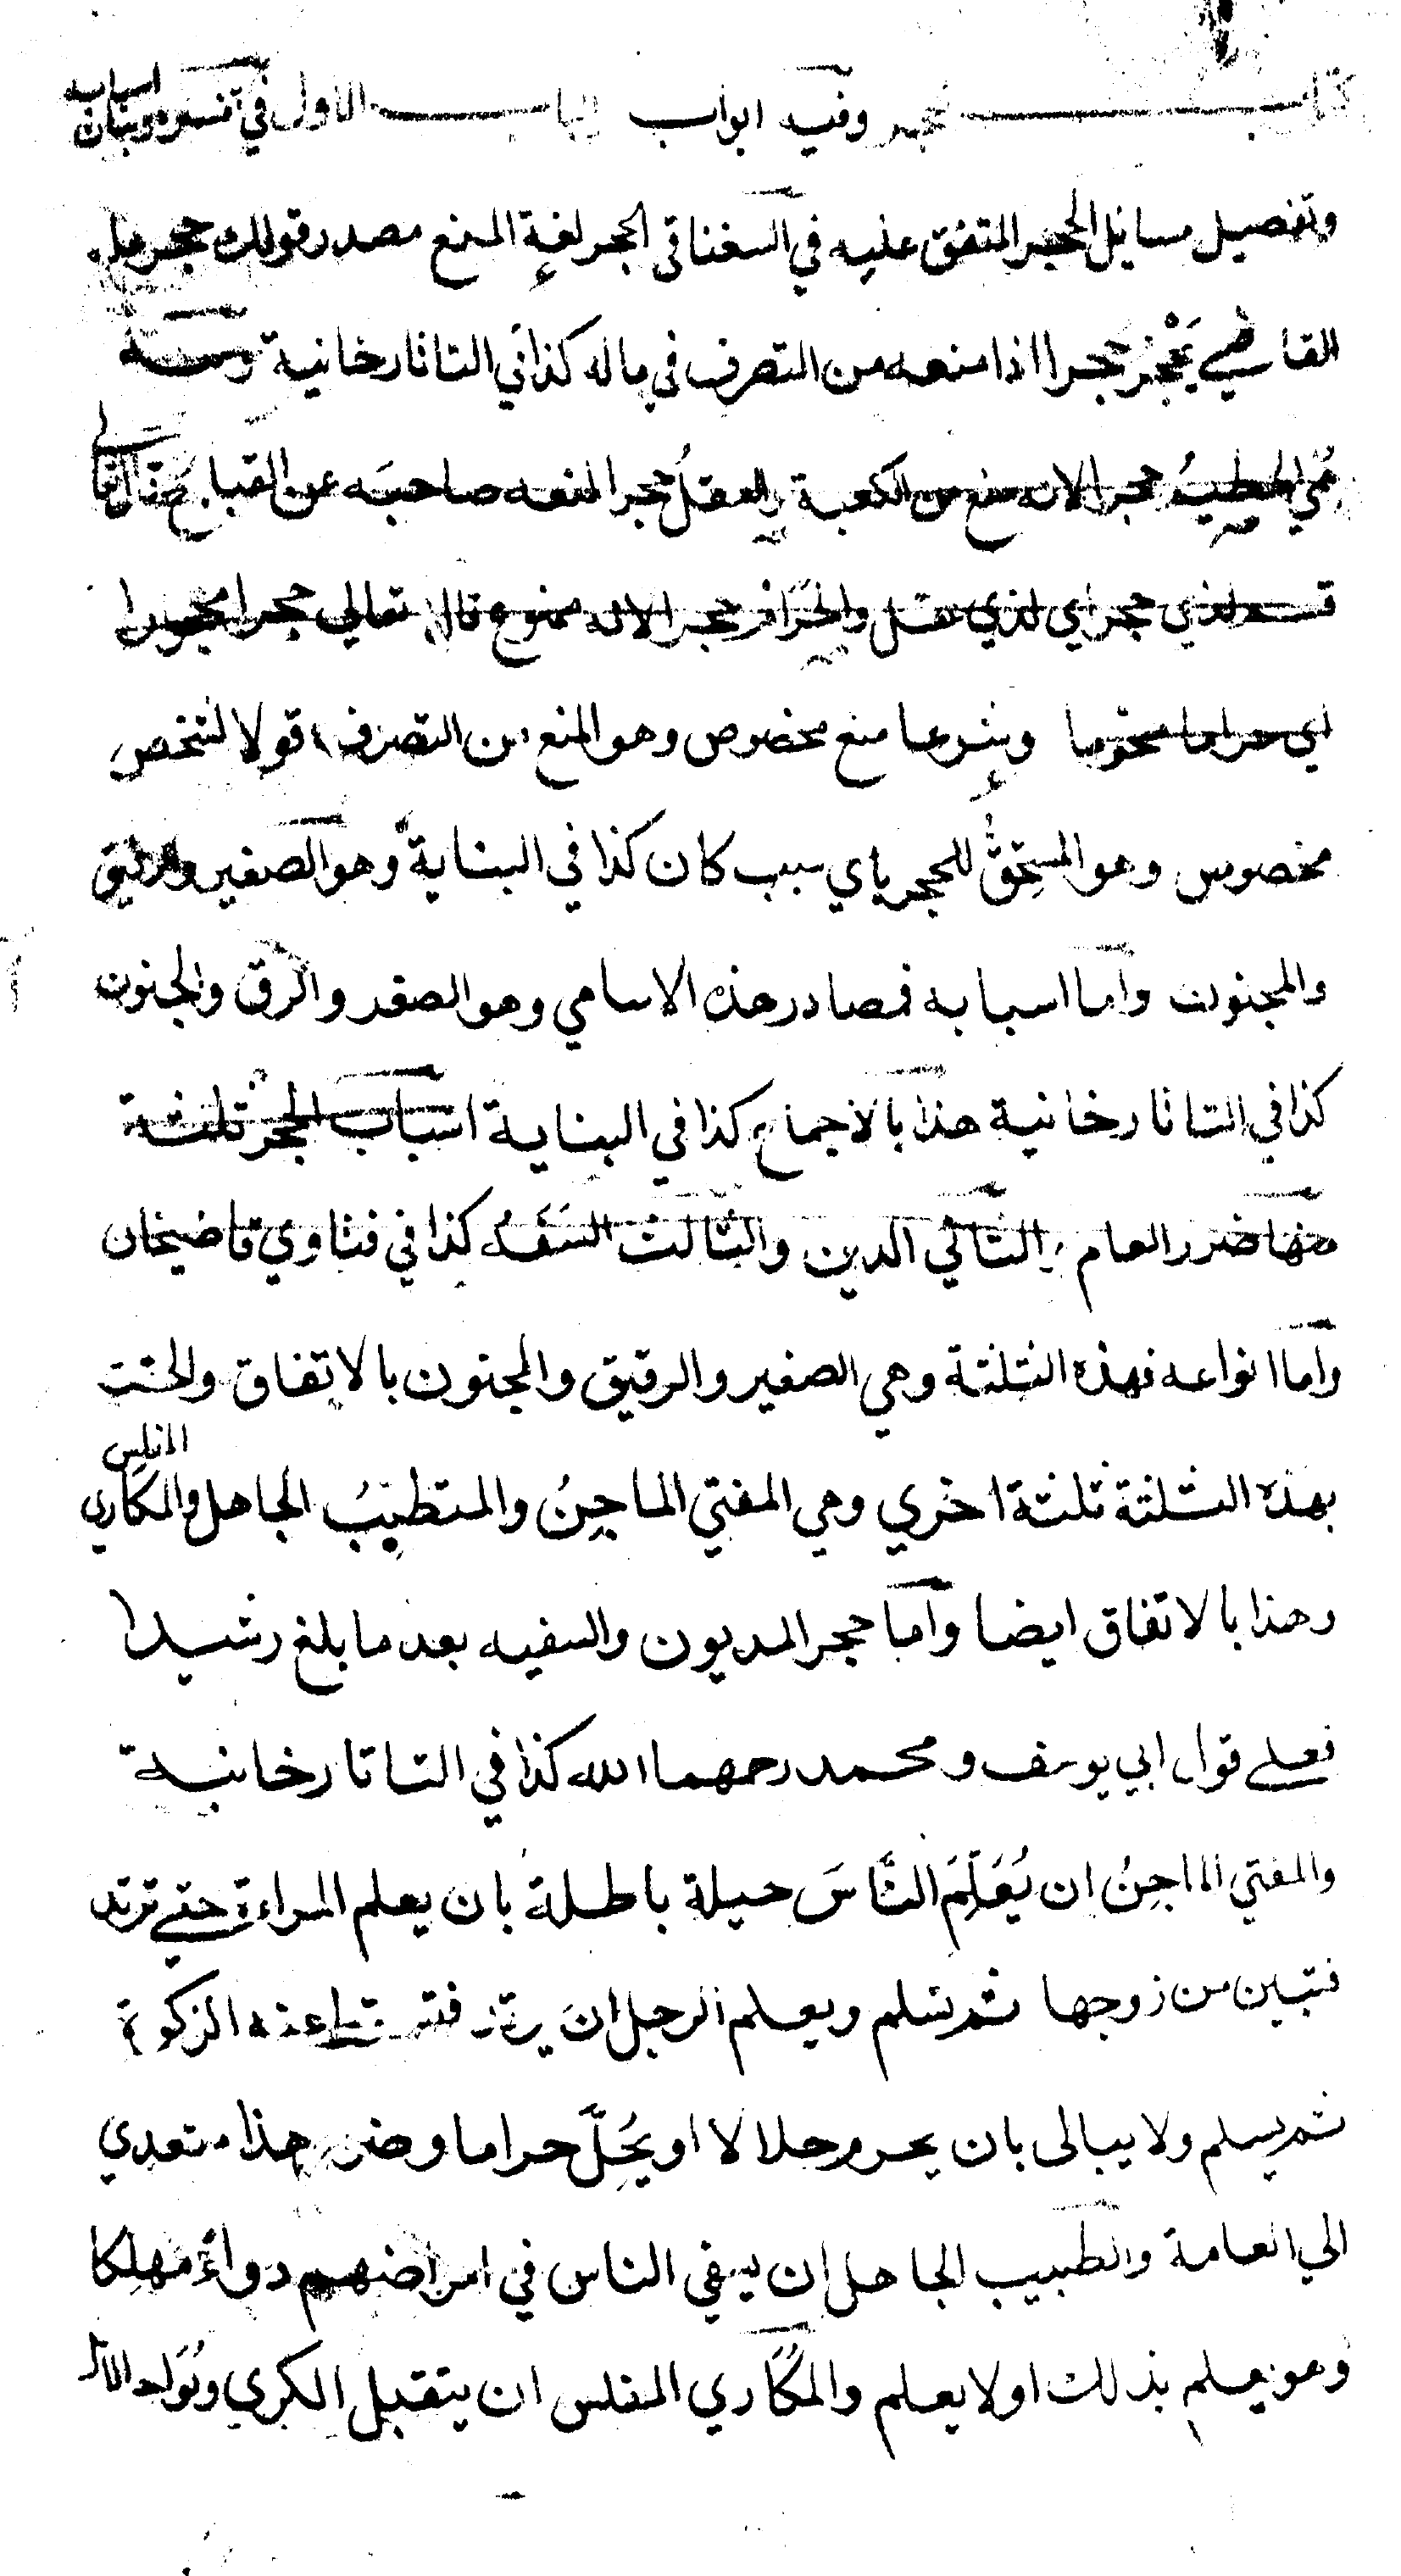 كتاب الحجر وفيه ابواب الباب الاول في تفسيره وبيان اسبابه
وتفصيل مسايل الحجر المتفق عليه في السغناقي الحجر لغة المنع مصدر قولك حجر عليه
القاضي يَحْجُر حجرا اذا منعه من التصرف في ماله كذا في التاتارخانية ومنه
سُمي الحطيمُ حجرا لانه منع من الكعبة والعقلُ حجرا لمنعه صاحبَه عن القبايح قال الله تعالى
قسم لذي حجر اي لذي عقل والحَرَام حجرا لانه ممنوع قال تعالي حجرا محجورا
اي حراما محرما وشرعا منع مخصوص وهو المنع من التصرف قولا لشخص
مخصوص وهو المستحِقُّ للحجر باي سبب كان كذا في البناية وهو الصغير والرقيق
والمجنون واما اسبابه فمصادر هذه الاسامي وهو الصغر والرق والجنون
كذا في التاتارخانية هذا بالاجماع كذا في البناية اسباب الحجر ثلثة
منها ضرر العام والثاني الدين والثالث السَفَه كذا في فتاوي قاضيخان
واما انواعه فهذه الثلثة وهي الصغير والرقيق والمجنون بالاتفاق والحقت
بهذه الثلثة ثلثة اخري وهي المفتي الماجِنُ والمتطبِبُ الجاهل والمكاري المفلس
وهذا بالاتفاق ايضا واما حجر المديون والسفيه بعد ما بلغ رشيدا
فعلى قول ابي يوسف ومحمد رحمهما الله كذا في التاتارخانية
والمفتي الماجِنُ ان يُعَلِّمَ النَّاسَ حيلة باطلة بان يعلم المراءة حتي ترتد
فتبين من زوجها ثم تسلم ويعلم الرجل ان يرتد فتسقط عنه الزكوة
ثم يسلم ولا يبالى بان يحرم حلالا او يُحِلَّ حراما وضرر هذا متعدي
الي العامة والطبيب الجاهل ان يسقي الناس في امراضهم دواءً مهلكا
وهو يعلم بذلك او لا يعلم والمُكَاري المفلس ان يتقبل الكري ويُوَاجر الابل